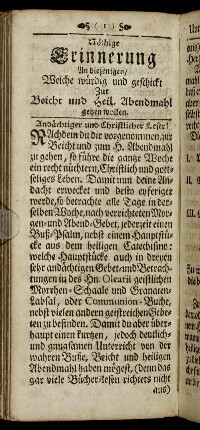 ( 1 )
Nöthige
Erinnerung
An diejenigen/
Welche würdig und geschickt
Zur
Beicht und Heil. Abendmahl
gehen wollen.
Andächtiger und Christlicher Leser!
NAchdem du dir vorgenommen, zur
Beicht und zum H. Abendmahl
zu gehen, so führe die gantze Woche
ein recht nüchtern, Christlich und gott-
seliges Leben. Damit nun deine An-
dacht erwecket und desto eyferiger
werde, so betrachte alle Tage in der-
selben Woche, nach verrichteten Mor-
gen- und Abend-Gebet, jederzeit einen
Buß-Psalm, nebst einem Hauptstü-
cke aus dem heiligen Catechismo:
welche Hauptstücke auch in dreyen
sehr andächtigen Gebet- und Betrach-
tungen in des Hn. Olearii geistlichen
Myrrhen-Schaale und Granaten-
Labsal, oder Communion-Buche,
nebst vielen andern geistreichen Gebe-
ten zu befinden. Damit du aber über-
haupt einen kurtzen, jedoch deutlich-
und gnugsamen Unterricht von der
wahren Buße, Beicht und heiligen
Abendmahl haben mögest, (denn das
gar viele Bücher-lesen richtets nicht
aus)